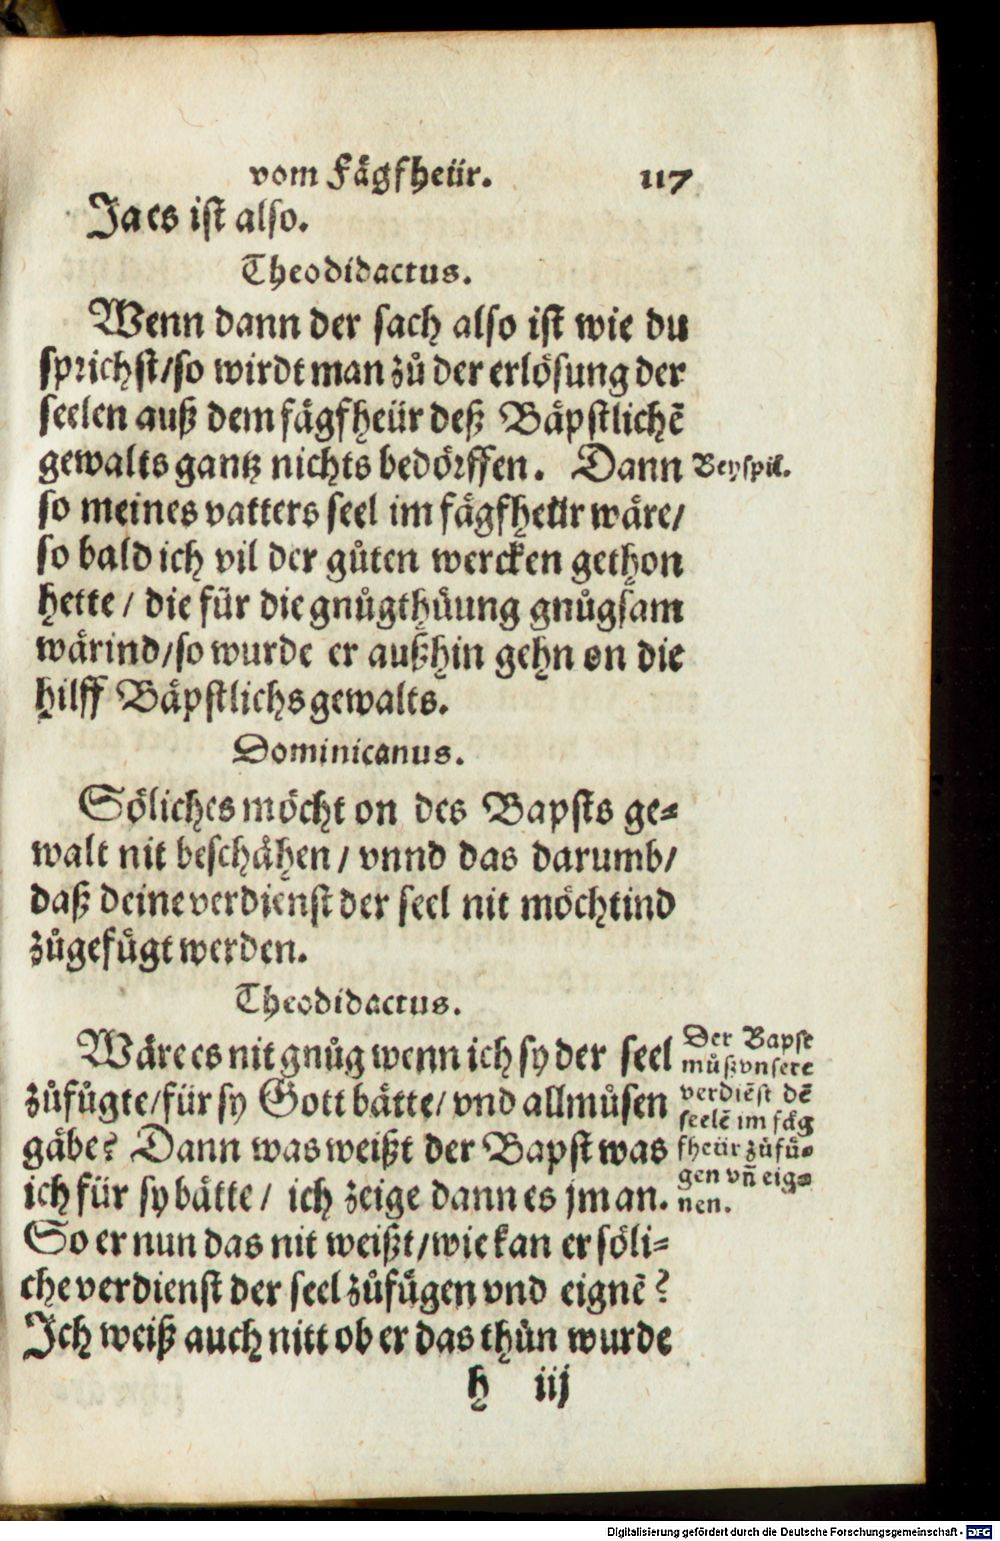 vom Fägfheür. 117
Ja es ist also.
Theodidactus.
Wenn dann der sach also ist wie du
sprichst/so wirdt man zů der erlösung der
seelen auß dem fägfheür deß Bäpstlichē
gewalts gantz nichts bedörffen. Dann
Beyspil.
so meines vatters seel im fägfheür wäre/
so bald ich vil der gůten wercken gethon
hette / die für die gnůgthůung gnůgsam
wärind/so wurde er außhin gehn on die
hilff Bäpstlichs gewalts.
Dominicanus.
Söliches möcht on des Bapsts ge-
walt nit beschähen / vnnd das darumb/
daß deine verdienst der seel nit möchtind
zůgefůgt werden.
Theodidactus.
Wäre es nit gnůg wenn ich sy der seel
zůfůgte/für sy Gott bätte/ vnd allmůsen
gäbe? Dann was weißt der Bapst was
ich für sy bätte / ich zeige dann es jm an.
So er nun das nit weißt/wie kan er söli-
che verdienst der seel zůfůgen vnd eignē?
Ich weiß auch nitt ob er das thůn wurde
Der Bapst
můß vnsere
verdiēst dē
seelē im fäg
fheür zůfů-
gen vñ eig-
nen.
h iij
Digitalisierung gefördert durch die Deutsche Forschungsgemeinschaft - DFG